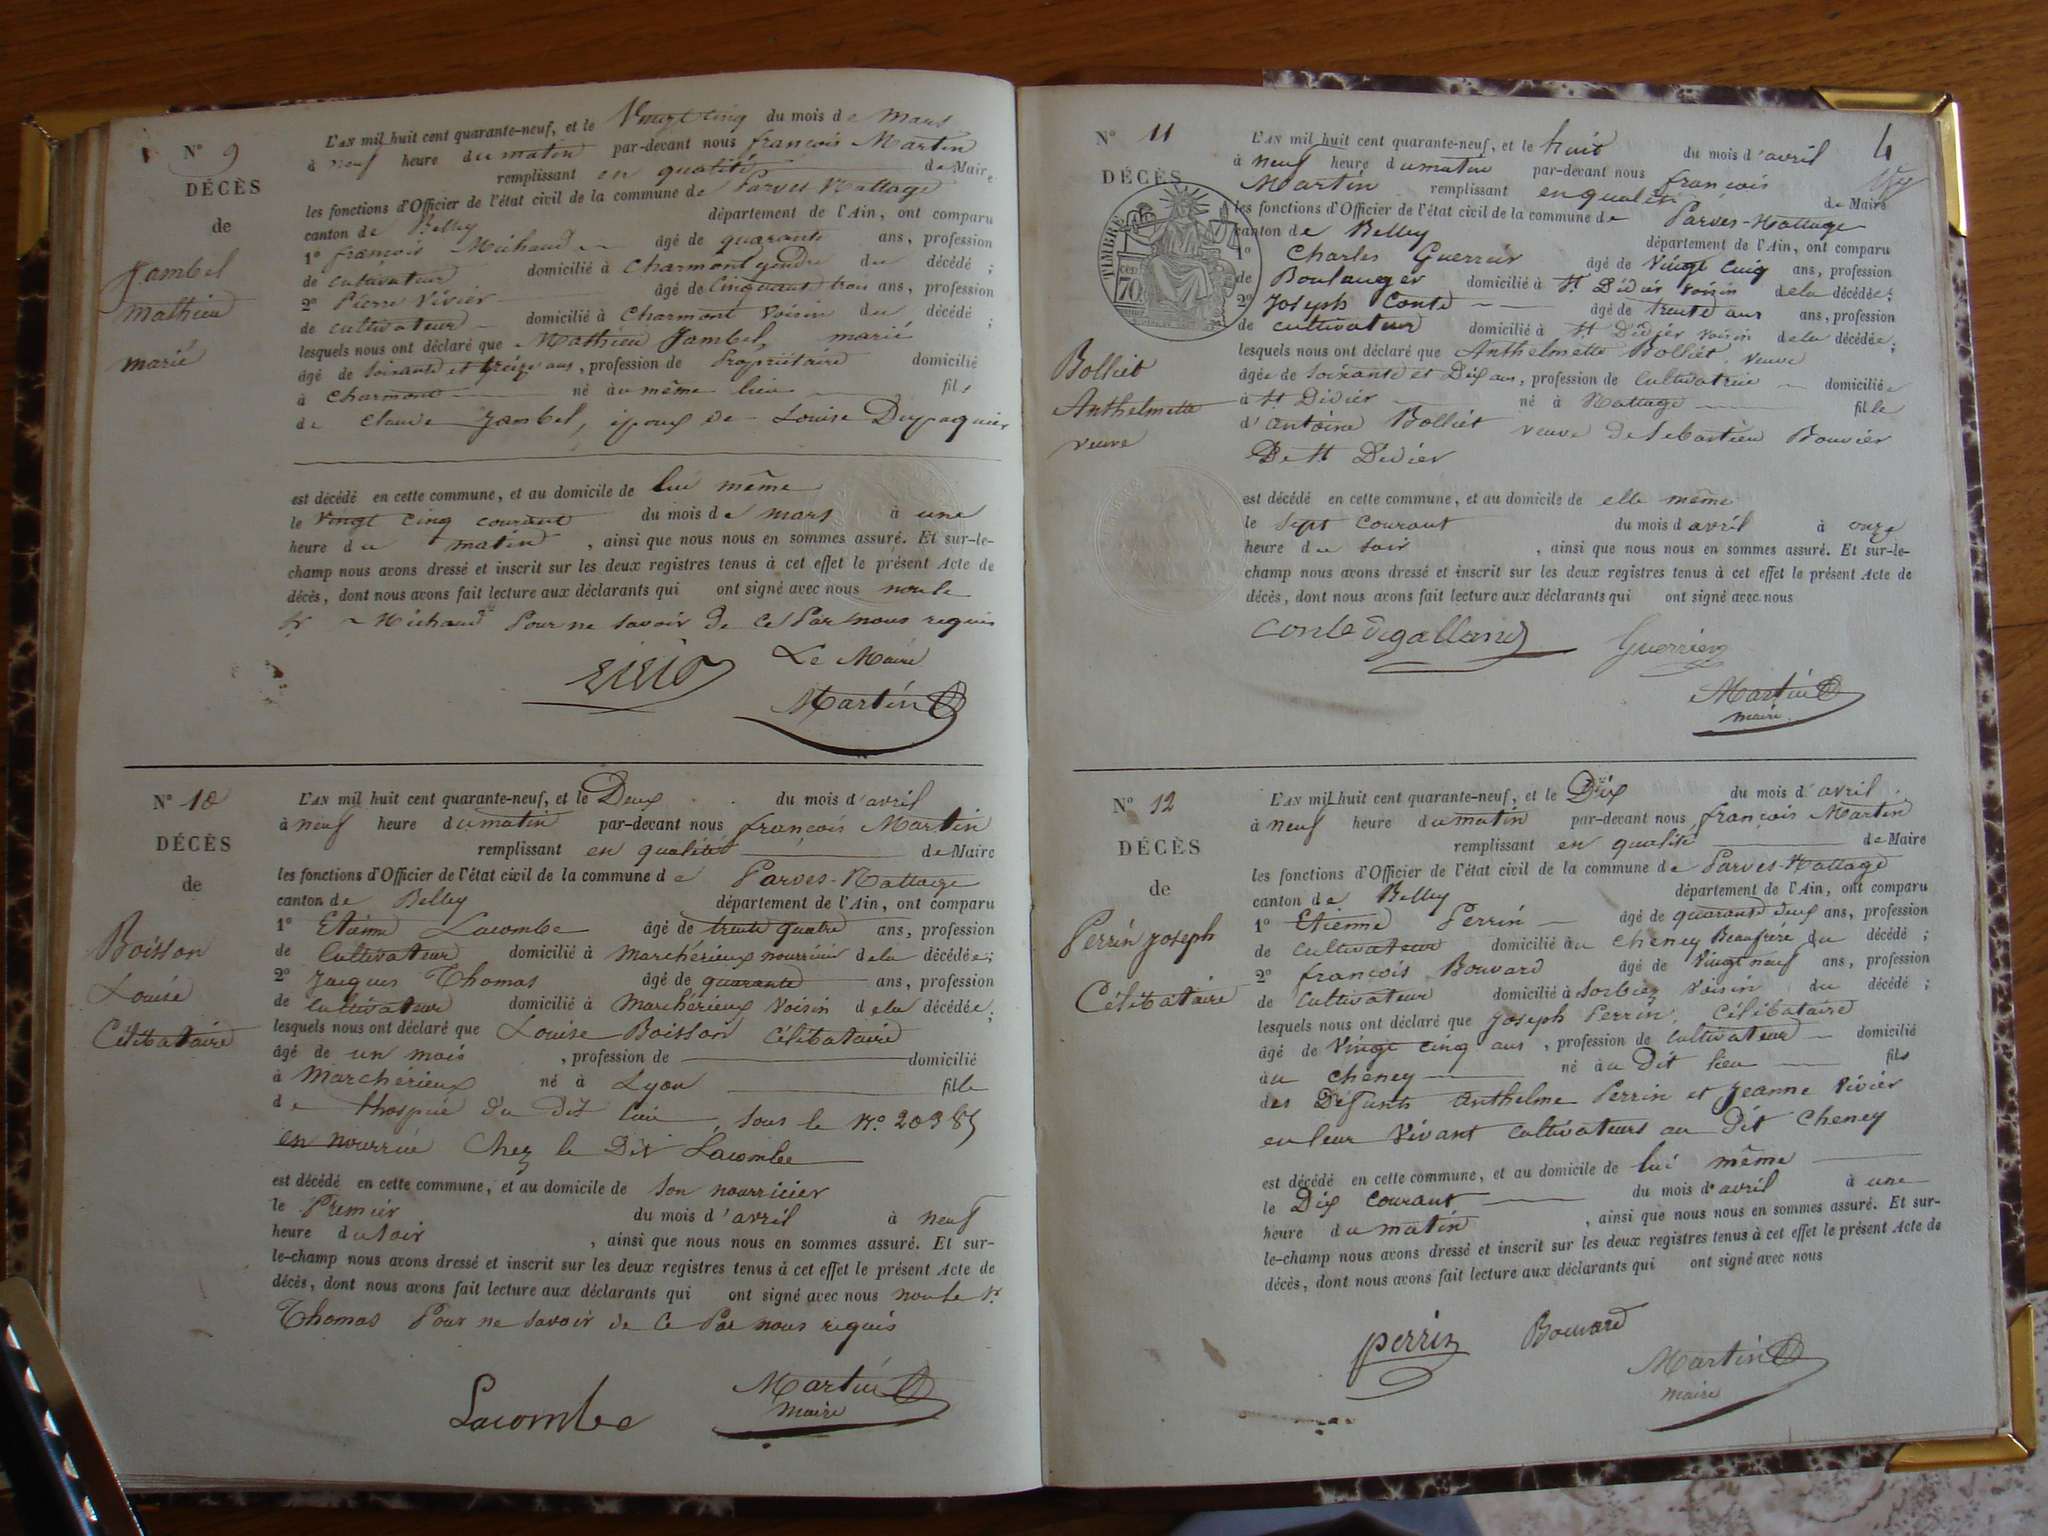 N° 9
DÉCÈS
de
Jambel
mathieu
marié
L'AN mil huit cent quarante-neuf, et le Vingt cinq du mois de mars
à neuf heure du matin par-devant nous françois Martin
remplissant en qualité de Maire
les fonctions d'Officier de l'état civil de la commune de Parves-Nattage
canton de Belley département de l'Ain, ont comparu
1° françois Michaud âgé de quarante ans, profession
de cultivateur domicilié à Charmont gendre du décédé ;
2° Pierre Vivier âgé de Cinquante trois ans, profession
de cultivateur domicilié à Charmont Voisin du décédé ;
lesquels nous ont déclaré que Mathieu Jambel, marié
âgé de soixante et treize ans, profession de Propriétaire domicilié
à Charmont né au même lieu fils
de Claude Jambel, époux de Louise
est décédé en cette commune, et au domicile de lui même
le vingt cinq courant du mois de mars à une
heure du matin, ainsi que nous nous en sommes assuré. Et sur-le-
champ nous avons dressé et inscrit sur les deux registres tenus à cet effet le présent Acte de
décès, dont nous avons fait lecture aux déclarants qui ont signé avec nous non le
Sr Michaud Pour ne savoir de ce Par nous requis
Le Maire
Martin
N° 10
DÉCÈS
de
Boisson
Louise
Célibataire
L'AN mil huit cent quarante-neuf, et le Deux du mois d'avril
à neuf heure du matin par-devant nous françois Martin
remplissant en qualité de Maire
les fonctions d'Officier de l'état civil de la commune de Parves-Nattage
canton de Belley département de l'Ain, ont comparu
1° Etienne Lacombe âgé de trente quatre ans, profession
de Cultivateur domicilié à Marchérieux nourricier de la décédée ;
2° Jacques Thomas âgé de quarante ans, profession
de Cultivateur domicilié à Marchérieux Voisin de la décédée ;
lesquels nous ont déclaré que Louise Boisson Célibataire
âgé de un mois, profession de domicilié
à Marchérieux né à Lyon fille
de l'hospice du Dit lieu, sous le N°. 20385
en nourrice Chez le Dit Lacombe
est décédé en cette commune, et au domicile de son nourricier
le Premier du mois d'avril à neuf
heure du soir, ainsi que nous nous en sommes assuré. Et sur-
le-champ nous avons dressé et inscrit sur les deux registres tenus à cet effet le présent Acte de
décès, dont nous avons fait lecture aux déclarants qui ont signé avec nous non le Sr.
Thomas Pour ne savoir de ce Par nous requis
Lacombe
Martin
maire
4
N° 11
DÉCÈS
TIMBRE
70
Bolliet
Anthelmette
veuve
L'AN mil huit cent quarante-neuf, et le huit du mois d'avril
à neuf heure du matin par-devant nous françois
Martin remplissant en qualité de Maire
les fonctions d'Officier de l'état civil de la commune de Parves-Nattage
canton de Belley département de l'Ain, ont comparu
1° Charles Guerrier âgé de Vingt Cinq ans, profession
de Boulanger domicilié à St. Didier voisin de la décédée ;
2° Joseph Conte âgé de trente ans ans, profession
de cultivateur domicilié à St Didier voisin de la décédée ;
lesquels nous ont déclaré que Anthelmette Bolliet, veuve
âgée de soixante et Dix ans, profession de Cultivatrice domiciliée
à St Didier né à Nattage fille
d'antoine Bolliet veuve de Sebastien Bouvier
De St Didier
est décédé en cette commune, et au domicile de elle même
le Sept Courant du mois d'avril à onze
heure du soir, ainsi que nous nous en sommes assuré. Et sur-le-
champ nous avons dressé et inscrit sur les deux registres tenus à cet effet le présent Acte de
décès, dont nous avons fait lecture aux déclarants qui ont signé avec nous
Guerrier
Martin
maire
N° 12
DÉCÈS
de
Perrin Joseph
Célibataire
L'AN mil huit cent quarante-neuf, et le Dix du mois d'avril
à neuf heure du matin par-devant nous françois Martin
remplissant en qualité de Maire
les fonctions d'Officier de l'état civil de la commune de Parves-Nattage
canton de Belley département de l'Ain, ont comparu
1° Etienne Perrin âgé de quarante deux ans, profession
de Cultivateur domicilié au Cheney Beaufrère du décédé ;
2° françois Bouvard âgé de Vingt neuf ans, profession
de Cultivateur domicilié à Sorbiez Voisin du décédé ;
lesquels nous ont déclaré que Joseph Perrin, Célibataire
âgé de Vingt Cinq ans, profession de Cultivateur domicilié
au Cheney né au Dit lieu fils
des Défunts Anthelme Perrin et Jeanne Vivier
en leur Vivant Cultivateurs au Dit Cheney
est décédé en cette commune, et au domicile de lui même
le Dix courant du mois d'avril à une
heure du matin, ainsi que nous nous en sommes assuré. Et sur-
le-champ nous avons dressé et inscrit sur les deux registres tenus à cet effet le présent Acte de
décès, dont nous avons fait lecture aux déclarants qui ont signé avec nous
perrin
Bouvard
Martin
maire